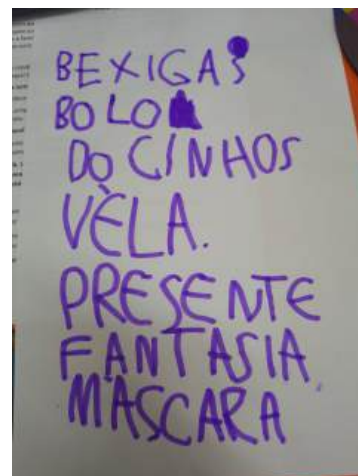 BEXIGAS
BOLO
DOCINHOS
VELA.
PRESENTE
FANTASIA.
MASCARA